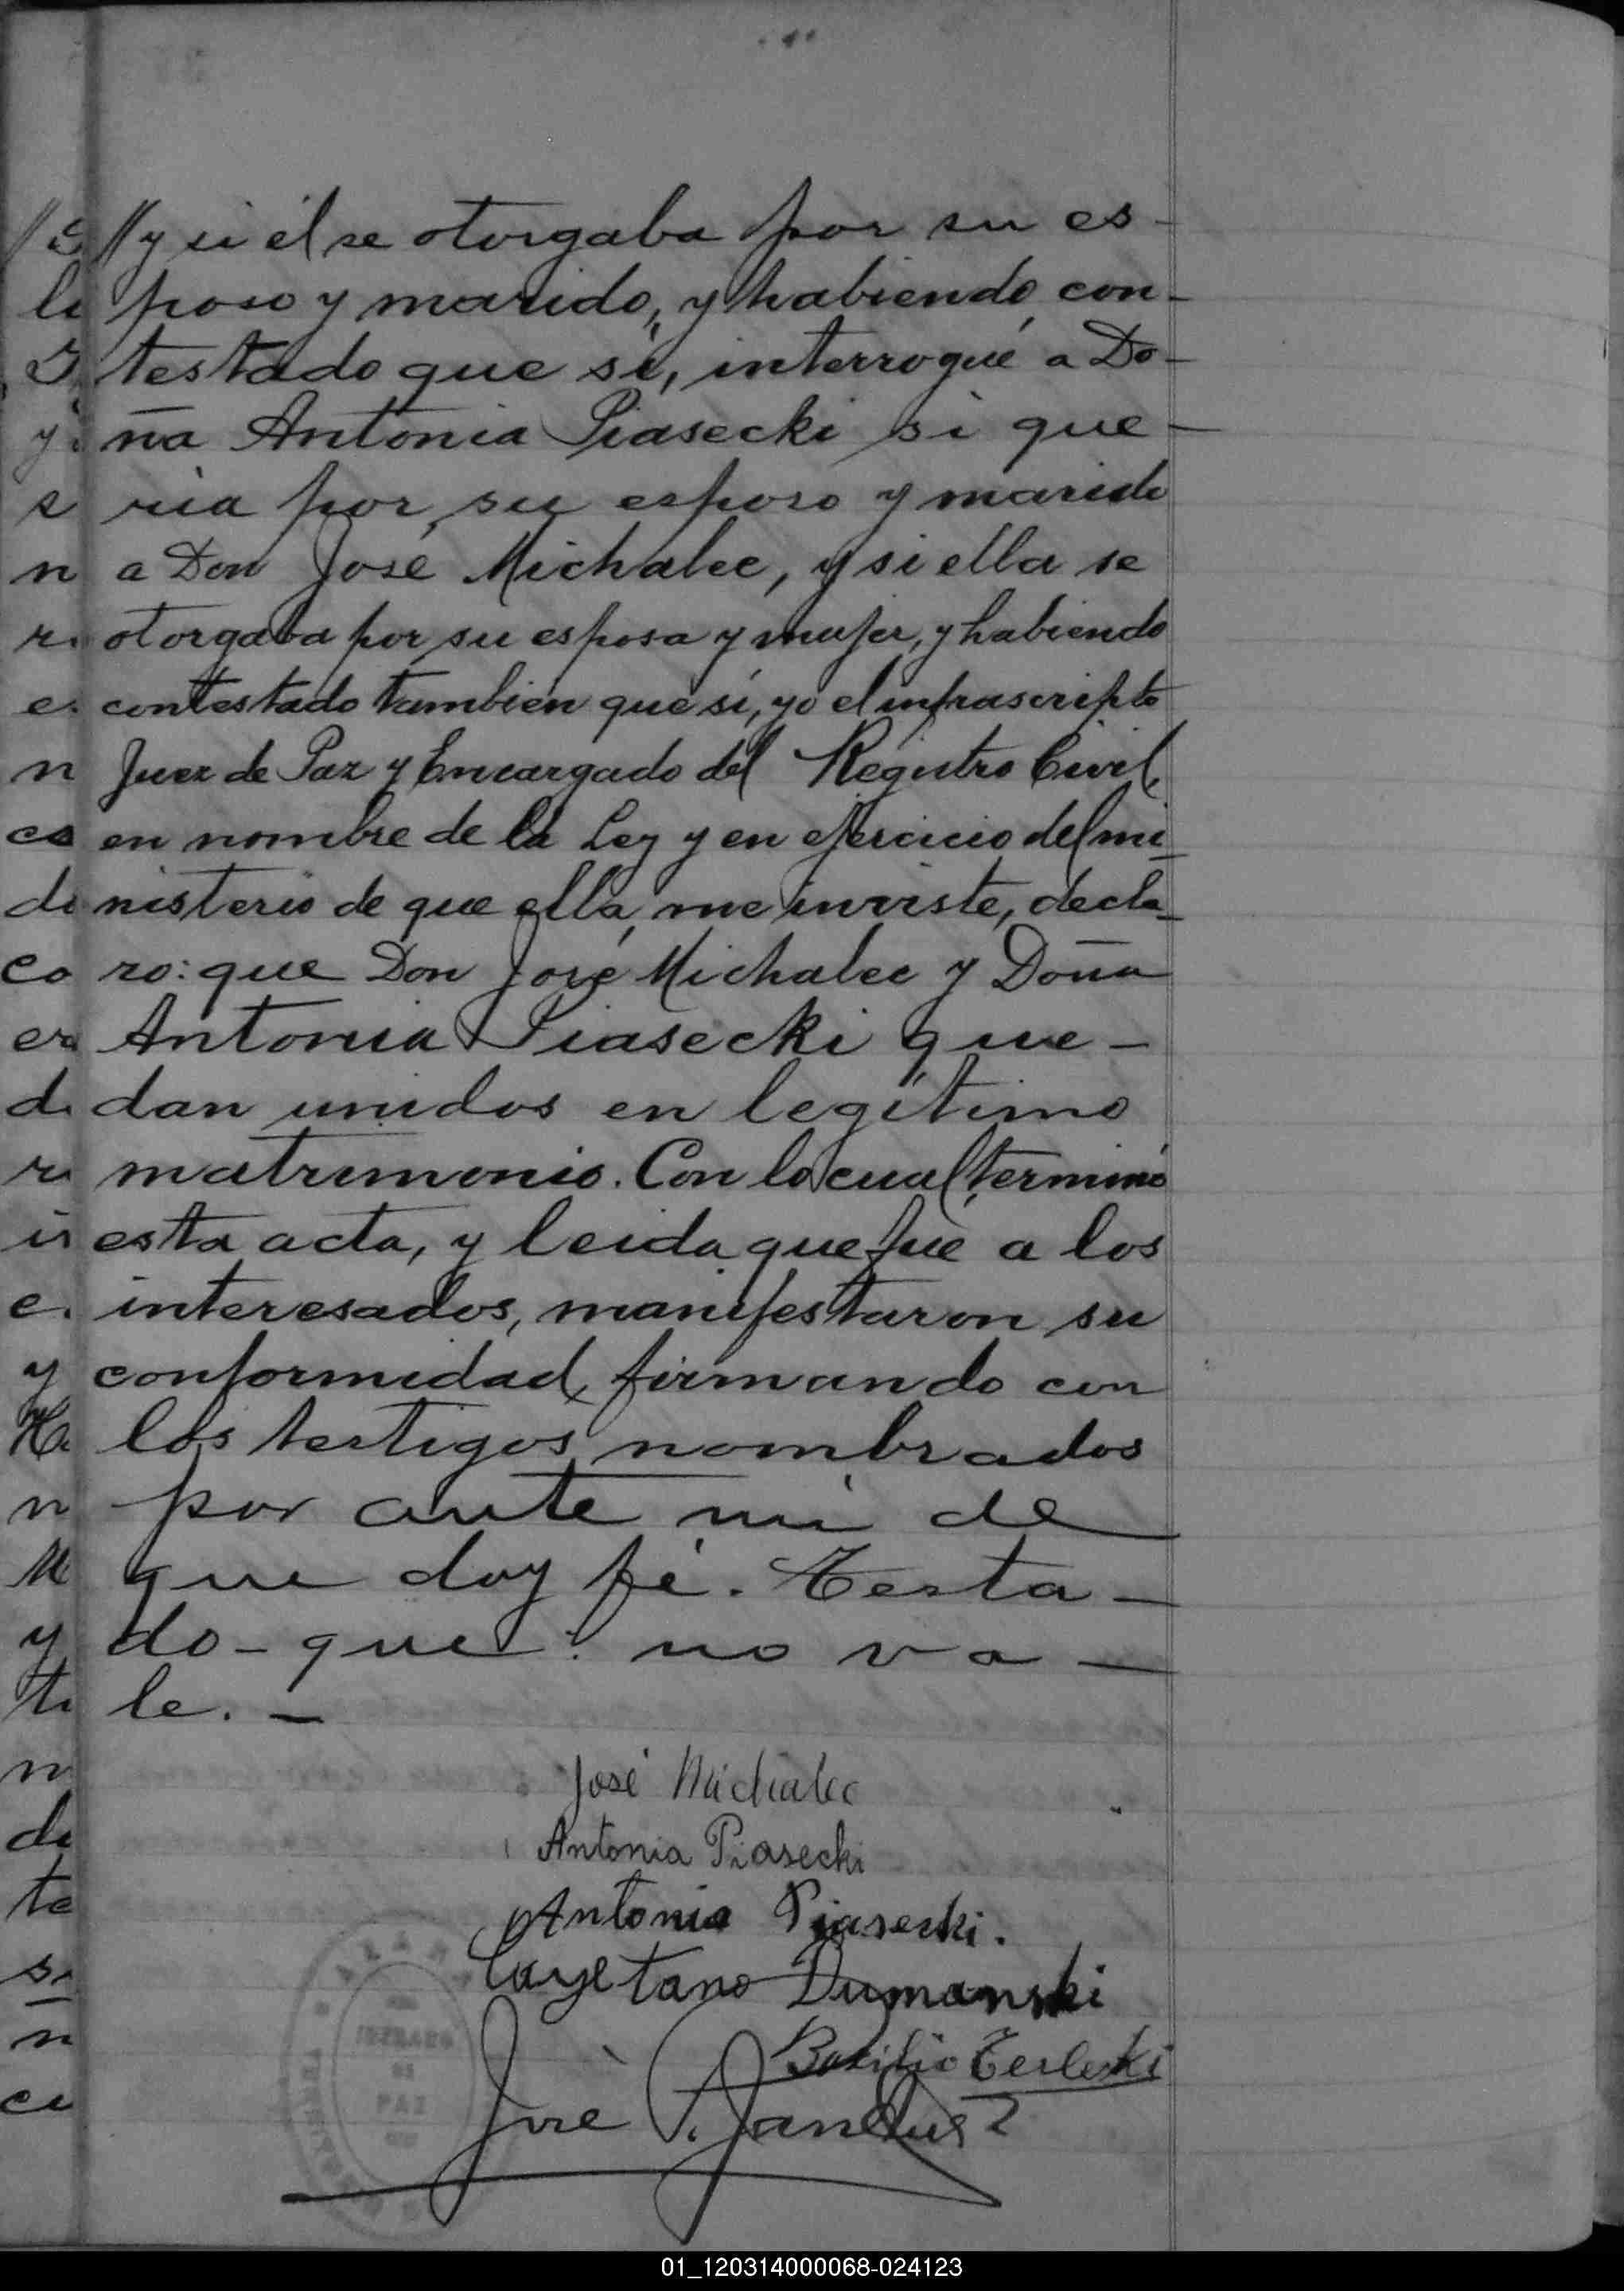 // y si él se otorgaba por su es-
poso y marido, y habiendo con-
testado que sí, interrogué a Do-
ña Antonia Piasecki si que-
ria por su esposo y marido
a Don José Michalec, y si ella se
otorgaba por su esposa y mujer, y habiendo
contestado tambien que sí, yo el infrascripto
Juez de Paz y Encargado del Registro Civil,
en nombre de la Ley y en ejercicio del mi-
nisterio de que ella me inviste, decla-
ro: que Don José Michalec y Doña
Antonia Piasecki que-
dan unidos en legítimo
matrimonio. Con lo cual terminó
esta acta, y leida que fué a los
interesados, manifestaron su
conformidad, firmando con
los testigos nombrados
por ante mi de
que doy fé. Testa-
do - que: no va-
le. -
José Michalec
Antonia Piasecki
Antonio Piasecki.
Cayetano Dumanski
Basilio Terlecki
José
JUZGADO
DE
PAZ
01_120314000068-024123